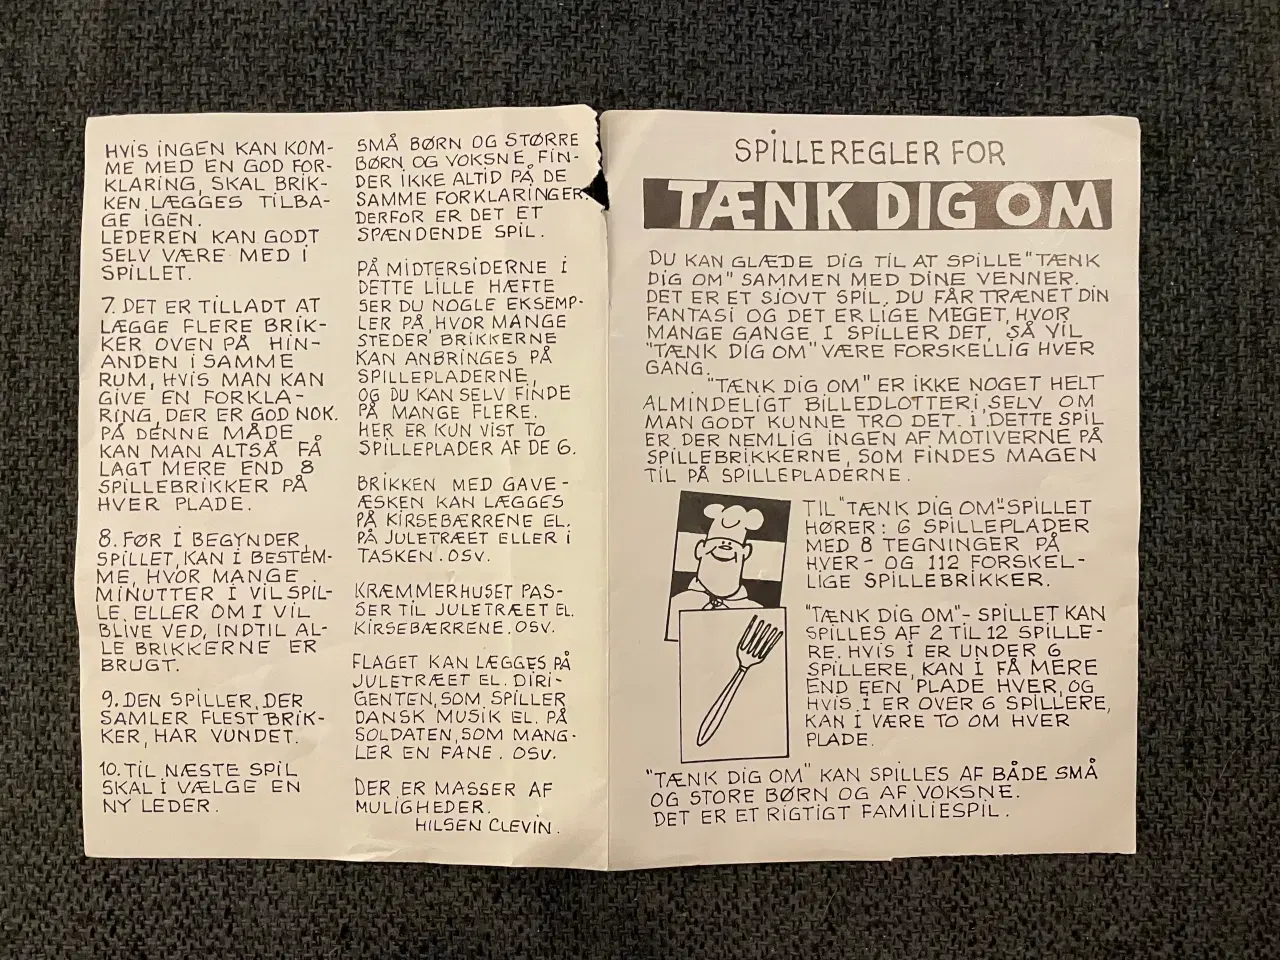 HVIS INGEN KAN KOM-
ME MED EN GOD FOR-
KLARING, SKAL BRIK-
KEN LÆGGES TILBA-
GE IGEN.
LEDEREN KAN GODT
SELV VÆRE MED I
SPILLET.
7. DET ER TILLADT AT
LÆGGE FLERE BRIK-
KER OVEN PÅ HIN-
ANDEN I SAMME
RUM, HVIS MAN KAN
GIVE EN FORKLA-
RING, DER ER GOD NOK.
PÅ DENNE MÅDE
KAN MAN ALTSÅ FÅ
LAGT MERE END 8
SPILLEBRIKKER PÅ
HVER PLADE.
8. FØR I BEGYNDER
SPILLET, KAN I BESTEM-
ME, HVOR MANGE
MINUTTER I VIL SPIL-
LE, ELLER OM I VIL
BLIVE VED, INDTIL AL-
LE BRIKKERNE ER
BRUGT.
9. DEN SPILLER, DER
SAMLER FLEST BRIK-
KER, HAR VUNDET.
10. TIL NÆSTE SPIL
SKAL I VÆLGE EN
NY LEDER.
SMÅ BØRN OG STØRRE
BØRN OG VOKSNE, FIN-
DER IKKE ALTID PÅ DE
SAMME FORKLARINGER.
DERFOR ER DET ET
SPÆNDENDE SPIL.
PÅ MIDTERSIDERNE I
DETTE LILLE HÆFTE
SER DU NOGLE EKSEMP-
LER PÅ, HVOR MANGE
STEDER BRIKKERNE
KAN ANBRINGES PÅ
SPILLEPLADERNE,
OG DU KAN SELV FINDE
PÅ MANGE FLERE.
HER ER KUN VIST TO
SPILLEPLADER AF DE 6.
BRIKKEN MED GAVE-
ÆSKEN KAN LÆGGES
PÅ KIRSEBÆRRENE EL.
PÅ JULETRÆET ELLER I
TASKEN. OSV.
KRÆMMERHUSET PAS-
SER TIL JULETRÆET EL.
KIRSEBÆRRENE. OSV.
FLAGET KAN LÆGGES PÅ
JULETRÆET EL. DIRI-
GENTEN, SOM SPILLER
DANSK MUSIK EL. PÅ
SOLDATEN, SOM MANG-
LER EN FANE. OSV.
DER ER MASSER AF
MULIGHEDER.
HILSEN CLEVIN.
SPILLEREGLER FOR
TÆNK DIG OM
DU KAN GLÆDE DIG TIL AT SPILLE "TÆNK
DIG OM" SAMMEN MED DINE VENNER.
DET ER ET SJOVT SPIL, DU FÅR TRÆNET DIN
FANTASI OG DET ER LIGE MEGET, HVOR
MANGE GANGE I SPILLER DET, SÅ VIL
"TÆNK DIG OM" VÆRE FORSKELLIG HVER
GANG.
"TÆNK DIG OM" ER IKKE NOGET HELT
ALMINDELIGT BILLEDLOTTERI, SELV OM
MAN GODT KUNNE TRO DET. I DETTE SPIL
ER DER NEMLIG INGEN AF MOTIVERNE PÅ
SPILLEBRIKKERNE, SOM FINDES MAGEN
TIL PÅ SPILLEPLADERNE.
TIL "TÆNK DIG OM"-SPILLET
HØRER: 6 SPILLEPLADER
MED 8 TEGNINGER PÅ
HVER- OG 112 FORSKEL-
LIGE SPILLEBRIKKER.
"TÆNK DIG OM"- SPILLET KAN
SPILLES AF 2 TIL 12 SPILLE-
RE. HVIS I ER UNDER 6
SPILLERE, KAN I FÅ MERE
END EEN PLADE HVER, OG
HVIS I ER OVER 6 SPILLERE,
KAN I VÆRE TO OM HVER
PLADE.
"TÆNK DIG OM" KAN SPILLES AF BÅDE SMÅ
OG STORE BØRN OG AF VOKSNE.
DET ER ET RIGTIGT FAMILIESPIL.